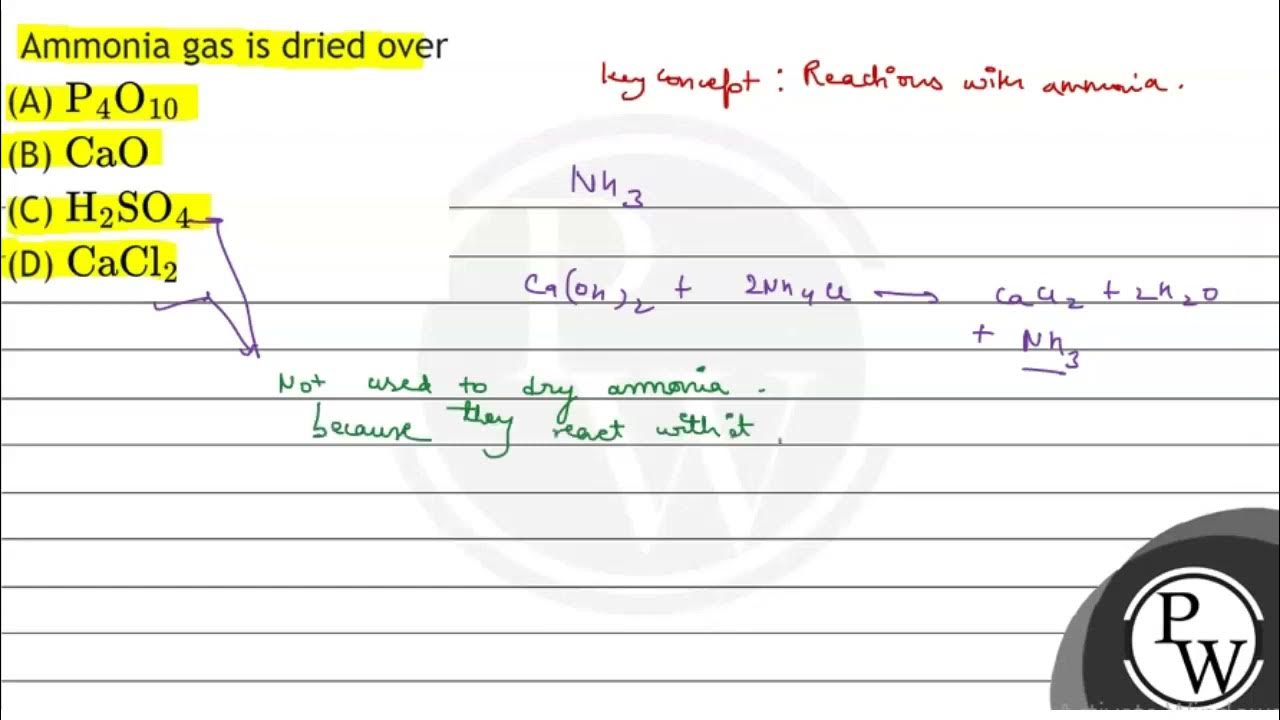 Ammonia gas is dried over
(A) P₄O₁₀
(B) CaO
(C) H₂SO₄
(D) CaCl₂
key concept : Reactions with ammonia .
NH₃
Ca(OH)₂ + 2NH₄Cl → CaCl₂ + 2H₂O
+ NH₃
Not used to dry ammonia .
because they react with it .
P
W
P
W